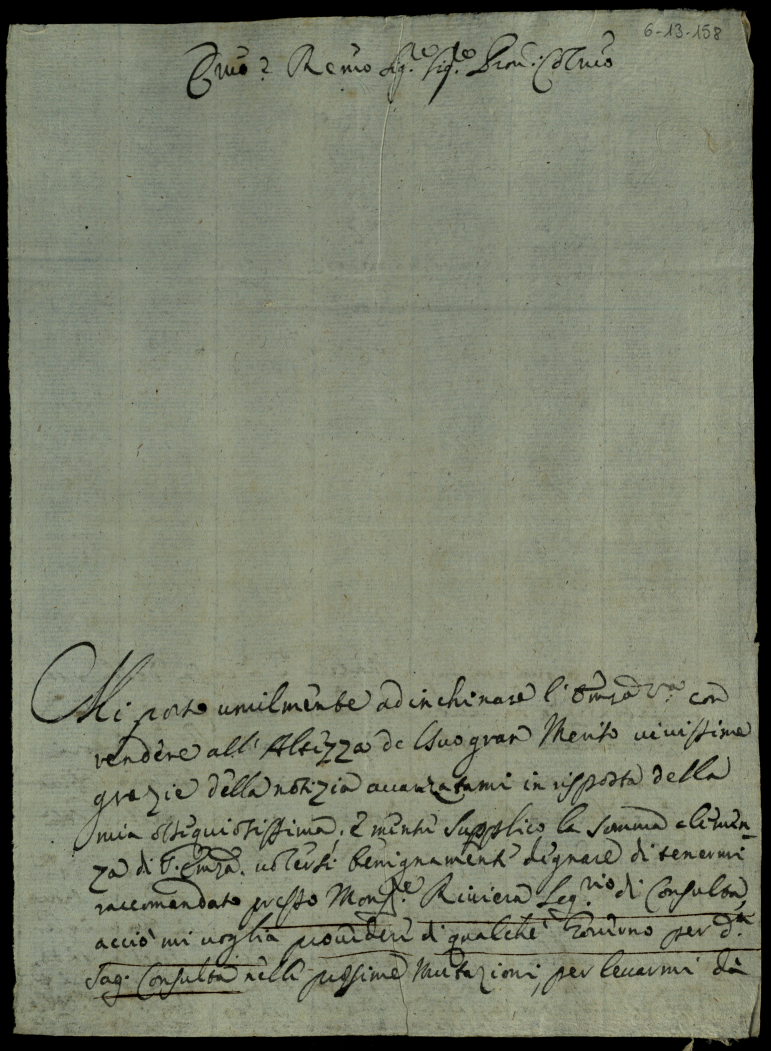 6-13-158
Emo e Rmo Sig.re Sig.re Pron. Colmo
Mi porto umilmente ad inchinare l'Emza V.ra con
rendere all'Altezza de Suo gran Merito vivissime
grazie della notizia avanzatami in risposta della
mia ossequiosissima; e mentre supplico la somma clemen-
za di V. Emza. volersi benignamente degnare di tenermi
raccomandato presso Mons.re Riviera Seg.rio di Consulta,
acciò mi voglia provedere di qualche Governo per d.ta
Sag. Consulta nelle prossime Mutazioni, per levarmi da